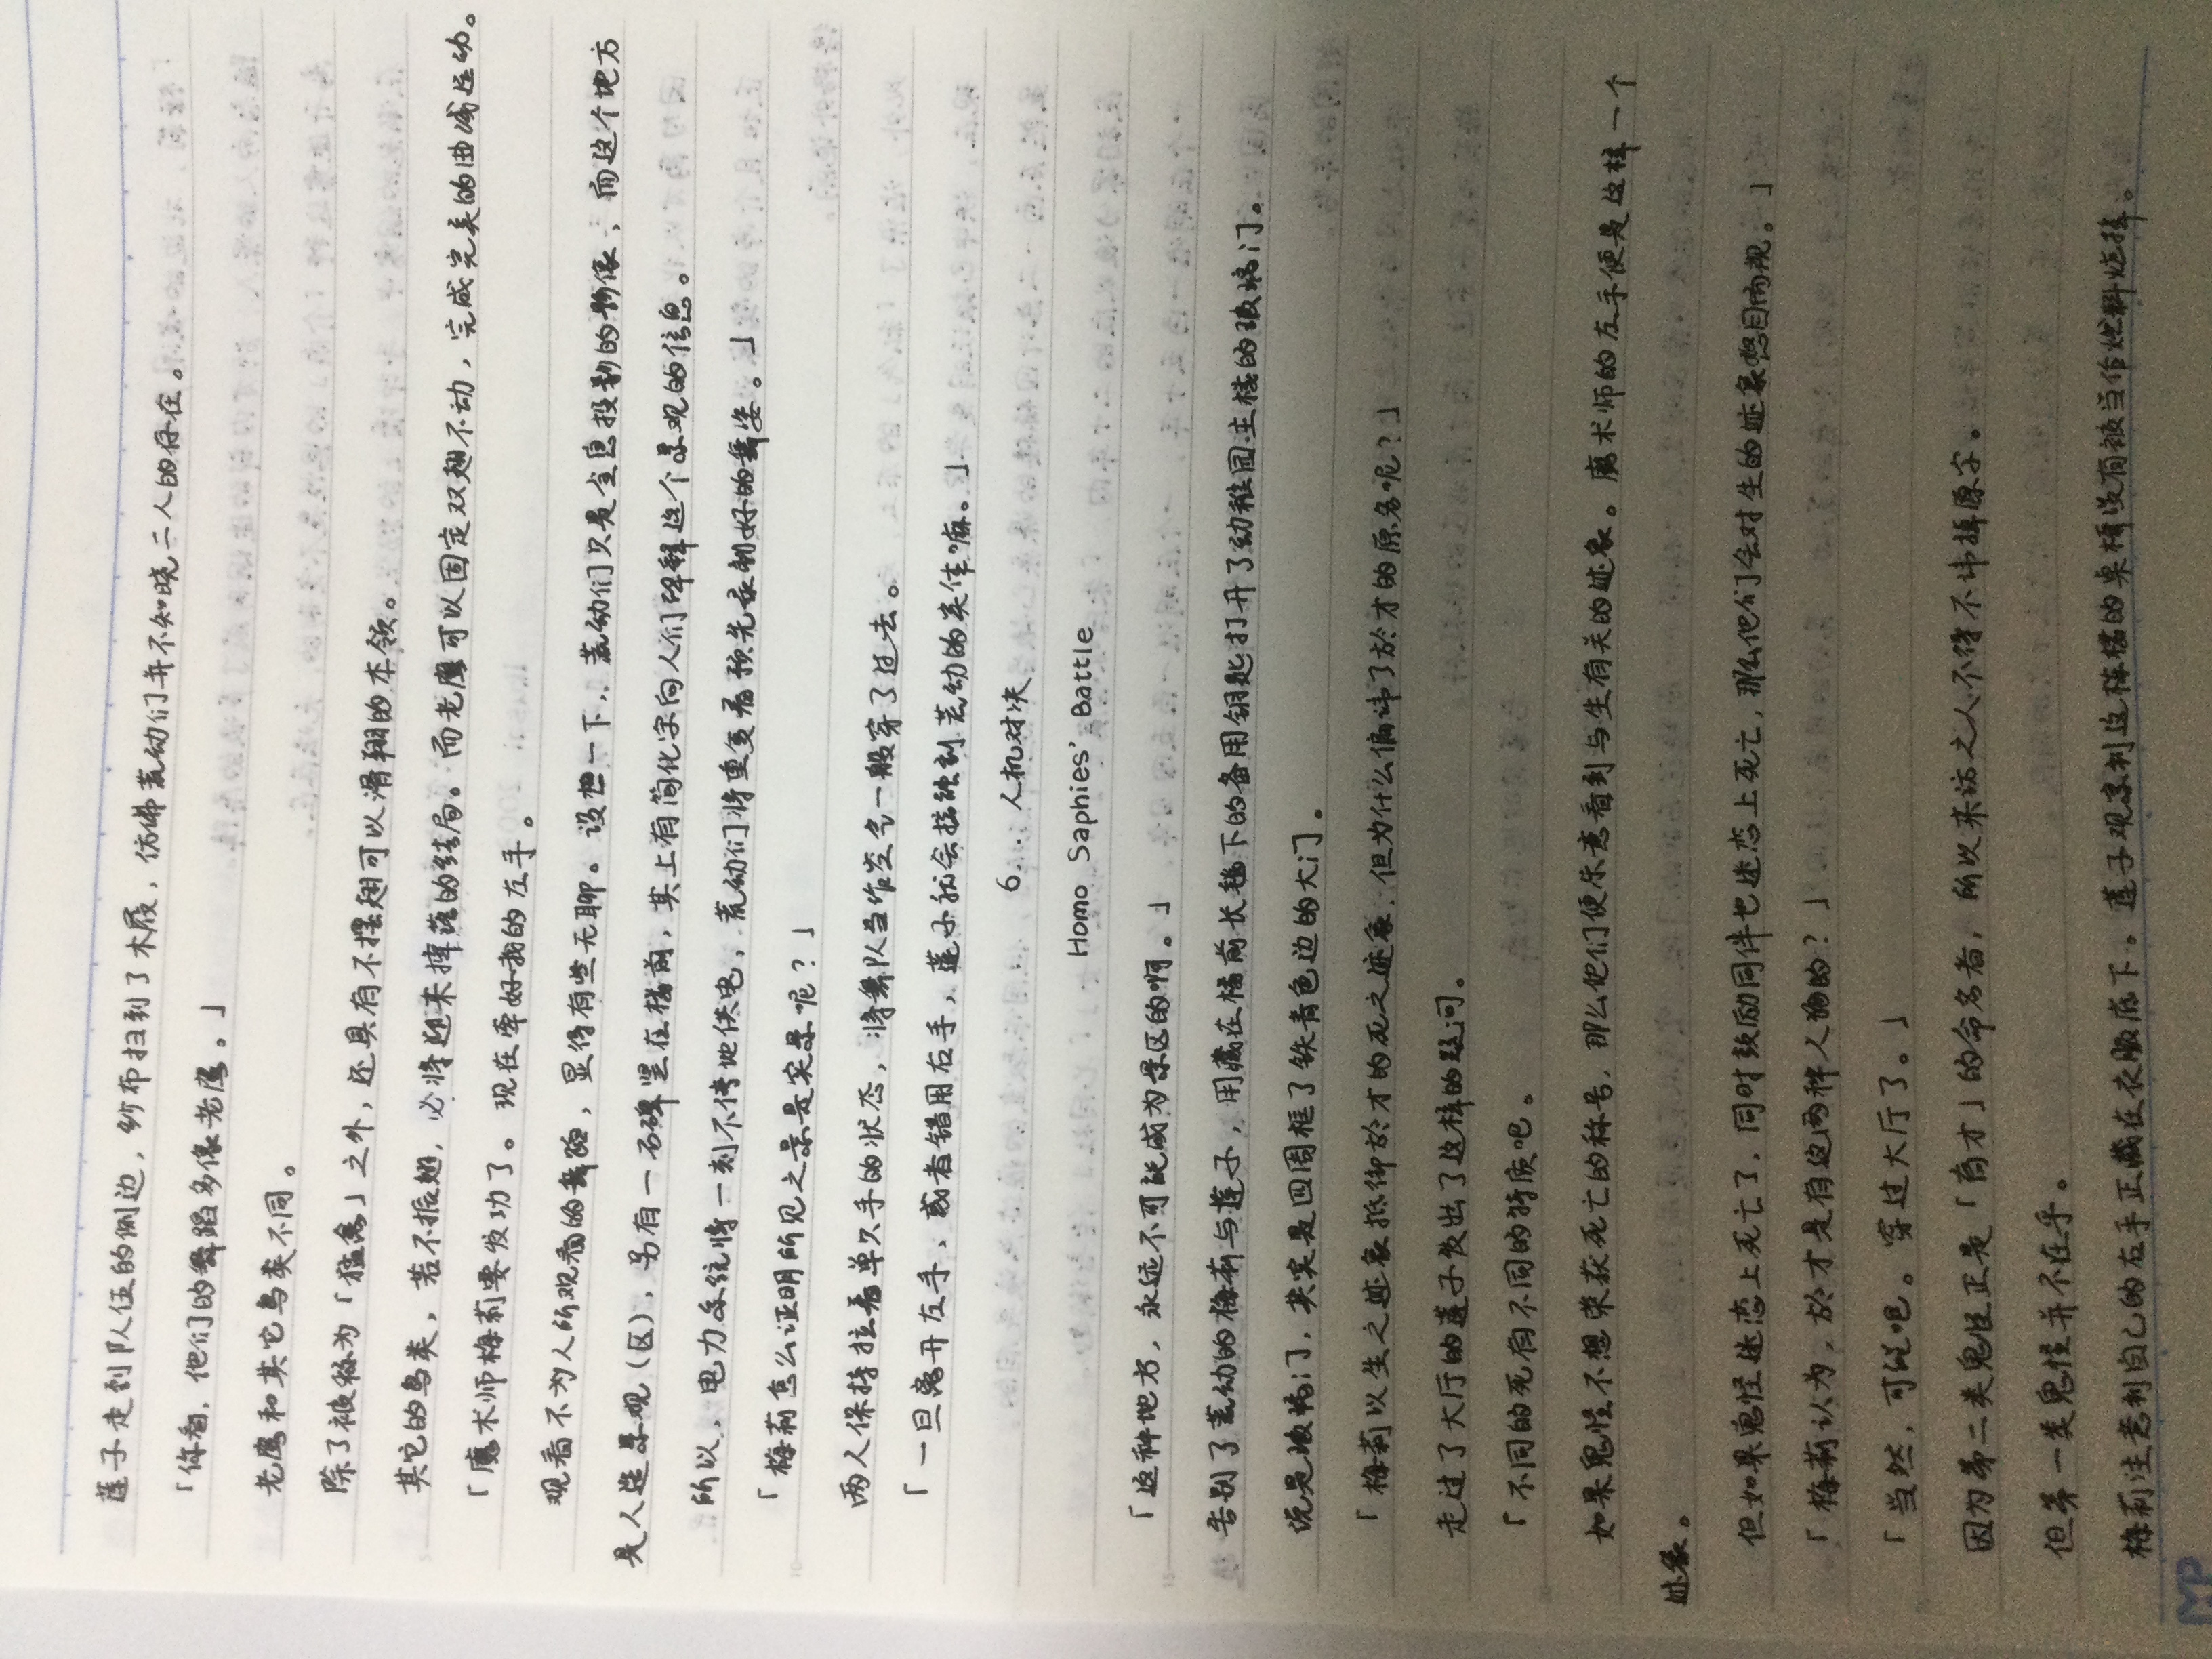 莲子走到队伍的侧边，纱布扫到了木屐，仿佛荒动们并不知晓二人的存在。
「你看，他们的舞蹈多像老鹰。」
老鹰和其它鸟类不同。
除了被称为「猛禽」之外，还具有不摆翅可以滑翔的本领。
其它的鸟类，若不振翅，必将迎来掉落的结局。而老鹰可以固定双翅不动，完成完美的曲线运动。
「魔术师梅莉要发功了。现在牵好我的左手。
观看不为人所观看的舞蹈，显得有些无聊。设想一下，荒动们只是全息投影的影像，而这个地方
是人造景观（区），另有一石碑竖在楼前，其上有简化字向人们解释这个景观的信息。
所以，电力系统将一刻不停地供电，荒动们将重复着预先录制好的舞姿。」
「梅莉怎么证明所见之景是实景呢？」
两人保持拉着单只手的状态，将舞队当作空气一般穿了过去。
「一旦离开左手，或者错用右手，莲子就会接触到荒动的实体嘛。」
6... 人机对决
Homo Saphies' Battle
「这种地方，永远不可能成为景区的啊。」
告别了荒动的梅莉与莲子，用藏在楼前长毯下的备用钥匙打开了幼稚园主楼的玻璃门。
说是玻璃门，其实是四周框了铁青色边的大门。
「梅莉以生之迹象抵御於才的死之迹象，但为什么偏讳了於才的原名呢？」
走过了大厅的莲子发出了这样的疑问。
「不同的死有不同的特质吧。
如果鬼怪不想荣获死亡的称号，那么他们便乐意看到与生有关的迹象。魔术师的左手便是这样一个
迹象。
但如果鬼怪迷恋上死亡了，同时鼓励同伴也迷恋上死亡，那么他们会对生的迹象怒目而视。」
「梅莉认为，於才是有这两种人物的？」
「当然，可能吧。穿过大厅了。」
因为第二类鬼怪正是「育才」的命名者，所以来访之人不得不讳掉原字。
但第一类鬼怪并不在乎。
梅莉注意到自己的右手正藏在衣服底下。莲子观察到这栋楼的桌椅没有被当作燃料烧掉。
MP